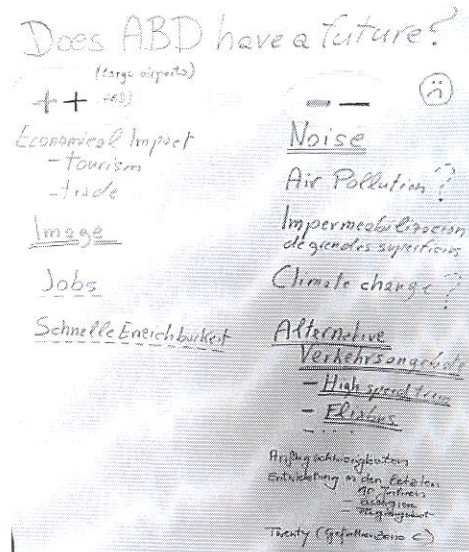 Does ABD have a future?
(large airports)
++
Economical Impact
- tourism
- trade
Image
Jobs
Schnelle Erreichbarkeit
— —
Noise
Air Pollution ?
Impermeabilizacion
de grandes superficies
Climate change ?
Alternative
Verkehrsangebote
- High speed train
- Flixbus
- ...
Entwicklung in den
Twenty (Gefahrenzone C)